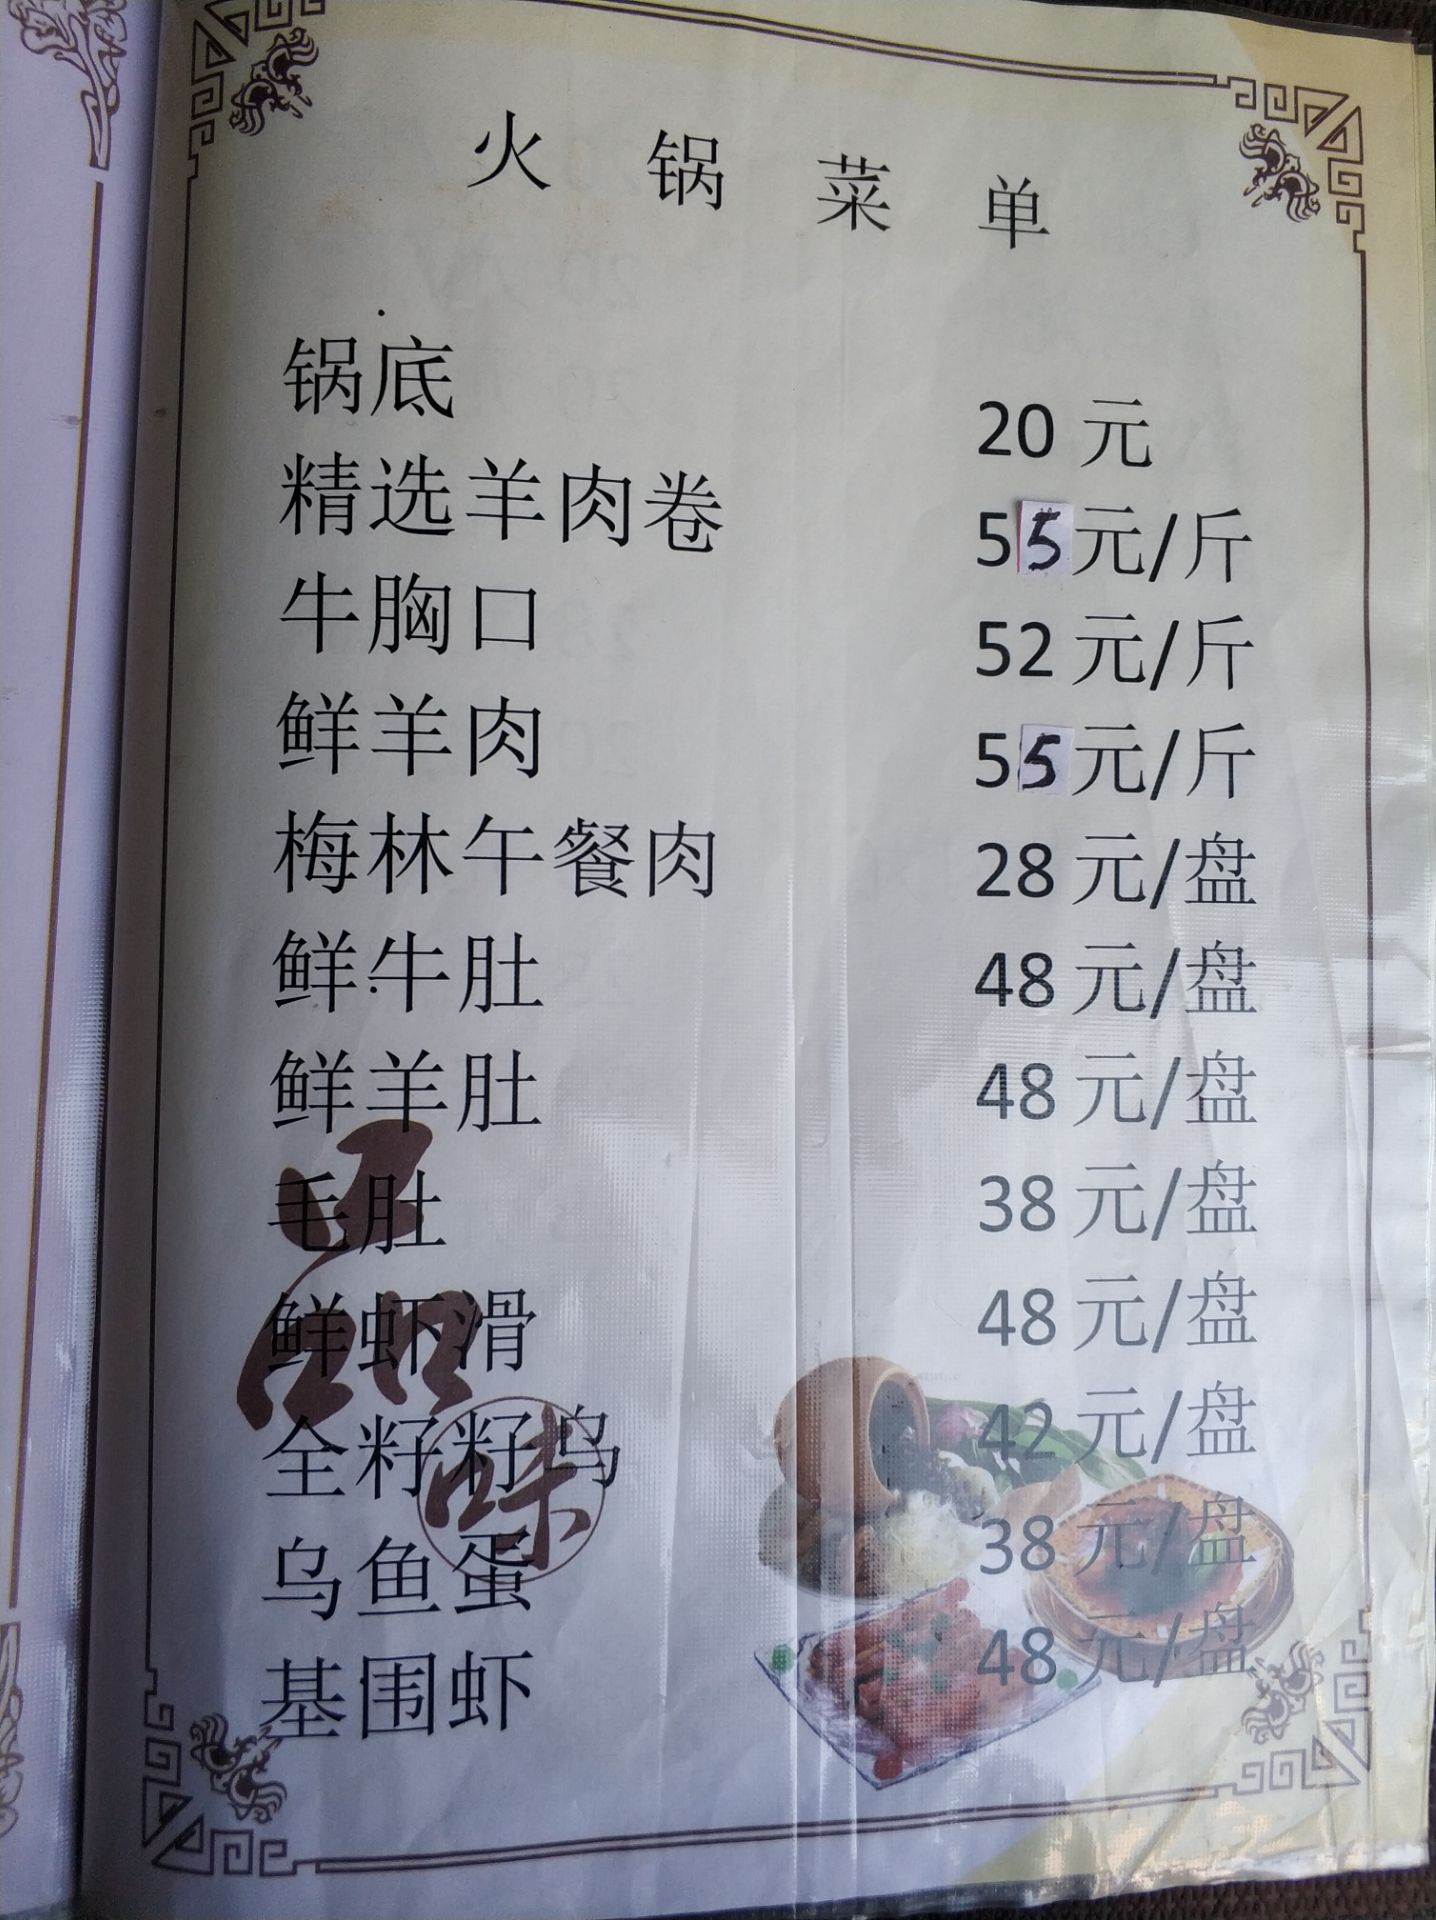 火锅菜单
锅底 20元
精选羊肉卷 55元/斤
牛胸口 52元/斤
鲜羊肉 55元/斤
梅林午餐肉 28元/盘
鲜牛肚 48元/盘
鲜羊肚 48元/盘
毛肚 38元/盘
鲜虾滑 48元/盘
全籽籽乌 42元/盘
乌鱼蛋 38元/盘
基围虾 48元/盘
品味